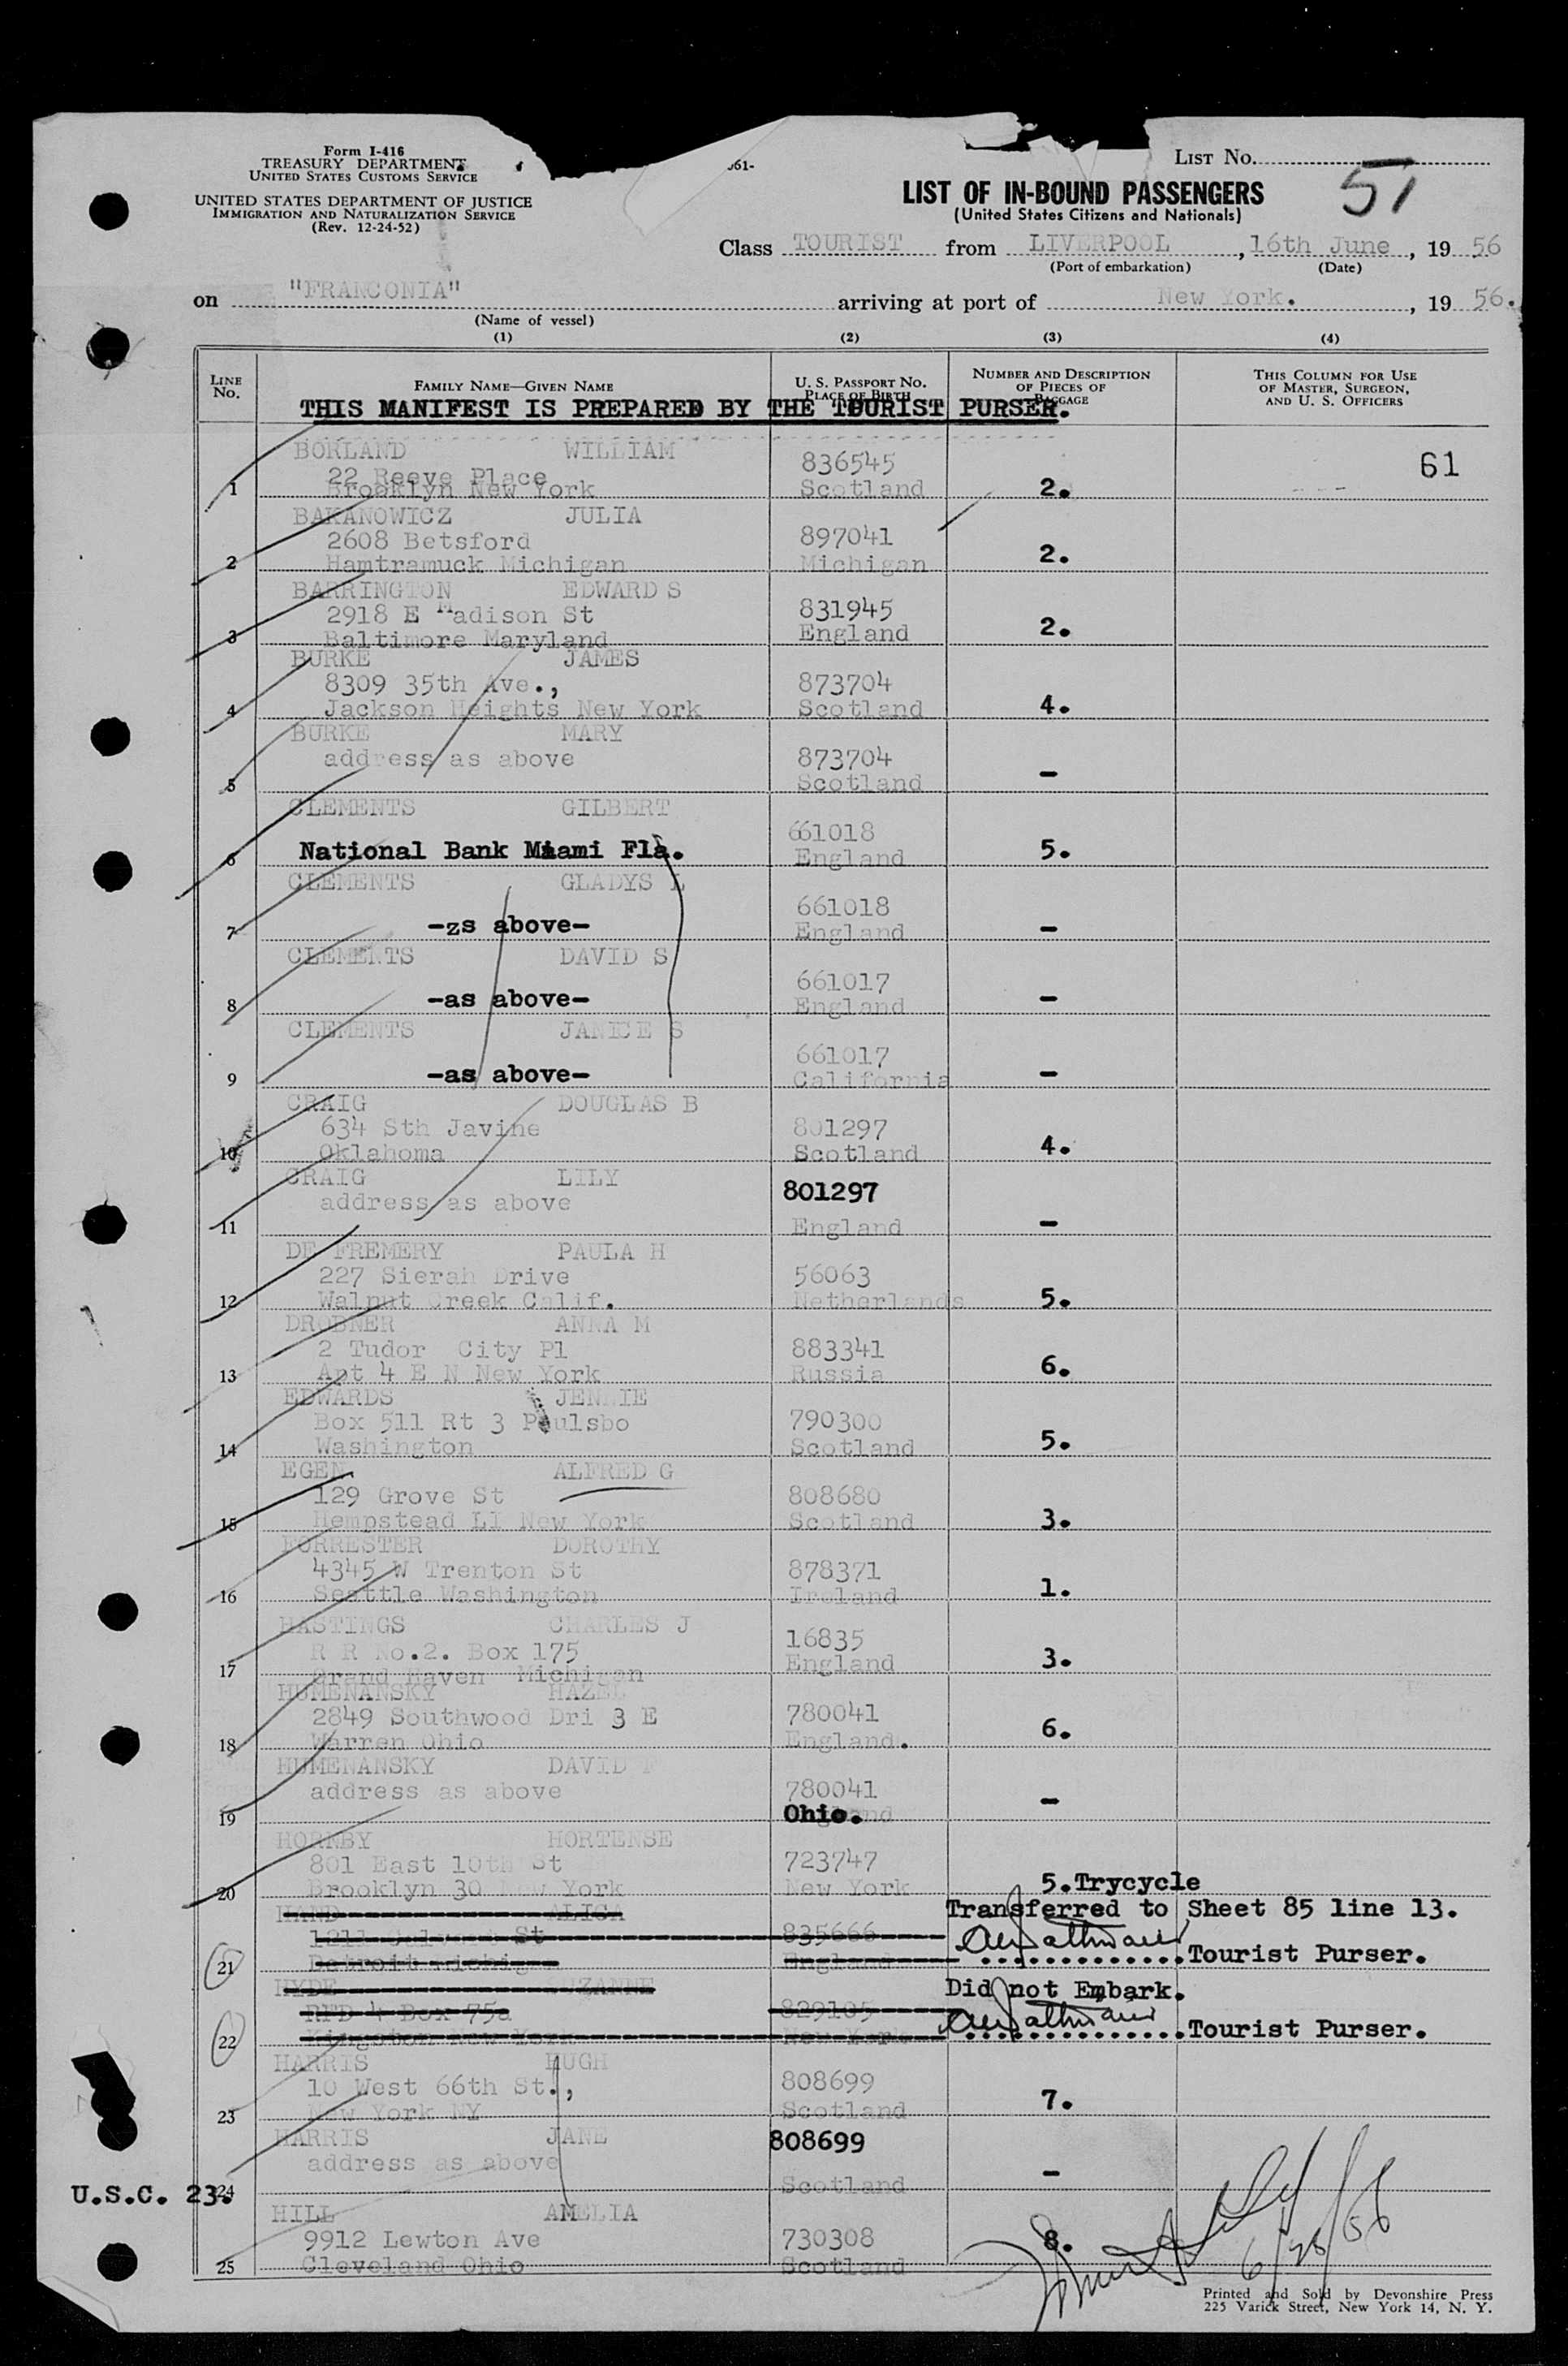 Form I-416
TREASURY DEPARTMENT
UNITED STATES CUSTOMS SERVICE
UNITED STATES DEPARTMENT OF JUSTICE
IMMIGRATION AND NATURALIZATION SERVICE
(Rev. 12-24-52)
61-
LIST NO.
51
LIST OF IN-BOUND PASSENGERS
(United States Citizens and Nationals)
Class TOURIST from LIVERPOOL, 16th June, 19 56
(Port of embarkation) (Date)
on "FRANCONIA" arriving at port of New York., 19 56.
(Name of vessel)
(1) (2) (3) (4)
LINE NO. FAMILY NAME—GIVEN NAME U. S. PASSPORT NO. PLACE OF BIRTH NUMBER AND DESCRIPTION OF PIECES OF BAGGAGE THIS COLUMN FOR USE OF MASTER, SURGEON, AND U. S. OFFICERS
THIS MANIFEST IS PREPARED BY THE TOURIST PURSER.
BORLAND WILLIAM
22 Reeve Place 836545 61
1 Brooklyn New York Scotland 2.
BAKANOWICZ JULIA
2608 Betsford 897041
2 Hamtramuck Michigan Michigan 2.
BARRINGTON EDWARD S
2918 E Madison St 831945
3 Baltimore Maryland England 2.
BURKE JAMES
8309 35th Ave., 873704
4 Jackson Heights New York Scotland 4.
BURKE MARY
address as above 873704
5 Scotland –
CLEMENTS GILBERT
661018
6 National Bank Miami Fla. England 5.
CLEMENTS GLADYS L
661018
7 -zs above- England –
CLEMENTS DAVID S
661017
8 -as above- England –
CLEMENTS JANICE S
661017
9 -as above- California –
CRAIG DOUGLAS B
634 Sth Javine 801297
10 Oklahoma Scotland 4.
CRAIG LILY
address as above 801297
11 England –
DE FREMERY PAULA H
227 Sierah Drive 56063
12 Walnut Creek Calif. Netherlands 5.
DROBNER ANNA M
2 Tudor City Pl 883341
13 Apt 4 E N New York Russia 6.
EDWARDS JENNIE
Box 511 Rt 3 Poulsbo 790300
14 Washington Scotland 5.
EGEN ALFRED G
129 Grove St 808680
15 Hempstead LI New York Scotland 3.
FORRESTER DOROTHY
4345 W Trenton St 878371
16 Seattle Washington Ireland 1.
HASTINGS CHARLES J
R R No.2. Box 175 16835
17 Grand Haven Michigan England 3.
HUMENANSKY HAZEL
2849 Southwood Dri 3 E 780041
18 Warren Ohio England. 6.
HUMENANSKY DAVID
address as above 780041
19 Ohio. –
HORNBY HORTENSE
801 East 10th St 723747
20 Brooklyn 30 New York New York 5.Trycycle
HAND ALICA Transferred to Sheet 85 line 13.
1211 St 835666
21 Detroit Michigan England Tourist Purser.
HYDE SUZANNE Did not Embark.
RFD 4 Box 75a 829105
22 Kingston New York New York Tourist Purser.
HARRIS HUGH
10 West 66th St., 808699
23 New York NY Scotland 7.
HARRIS JANE 808699
address as above
U.S.C. 23. 24 Scotland –
HILL AMELIA
9912 Lewton Ave 730308 8.
25 Cleveland Ohio Scotland
Printed and Sold by Devonshire Press
225 Varick Street, New York 14, N. Y.